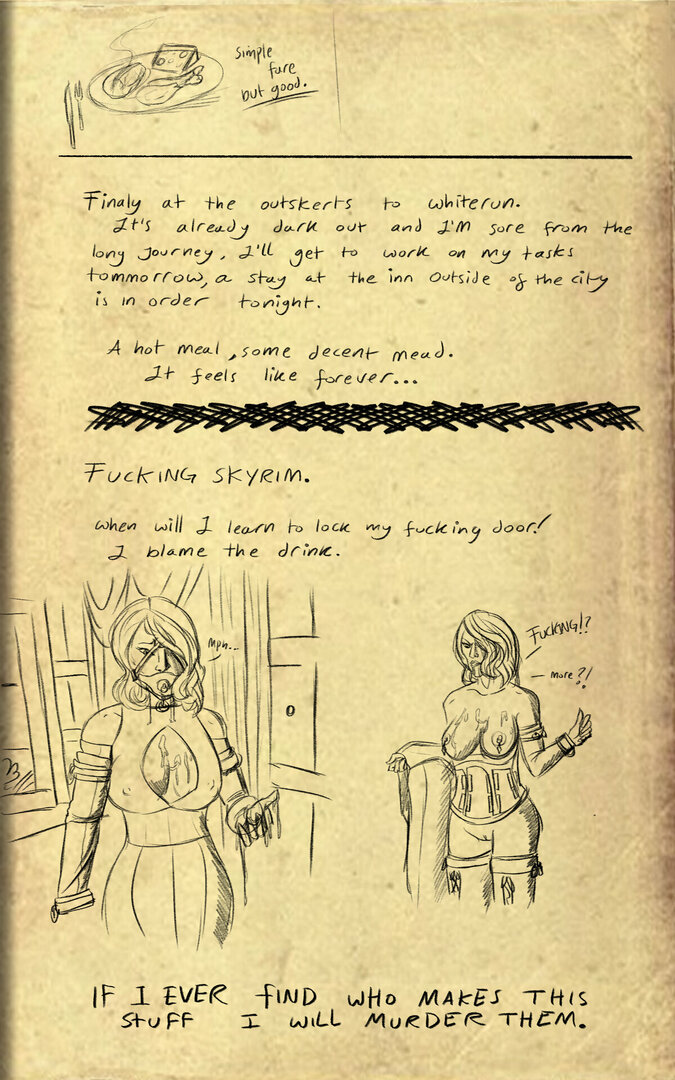 simple
fare
but good.
Finaly at the outskerts to whiterun.
It's already dark out and I'm sore from the
long journey, I'll get to work on my tasks
tommorrow, a stay at the inn outside of the city
is in order tonight.
A hot meal, some decent mead.
It feels like forever...
FUCKING SKYRIM.
when will I learn to lock my fucking door!
I blame the drink.
mph...
FUCKING!?
more?!
IF I EVER FIND WHO MAKES THIS
STUFF I WILL MURDER THEM.